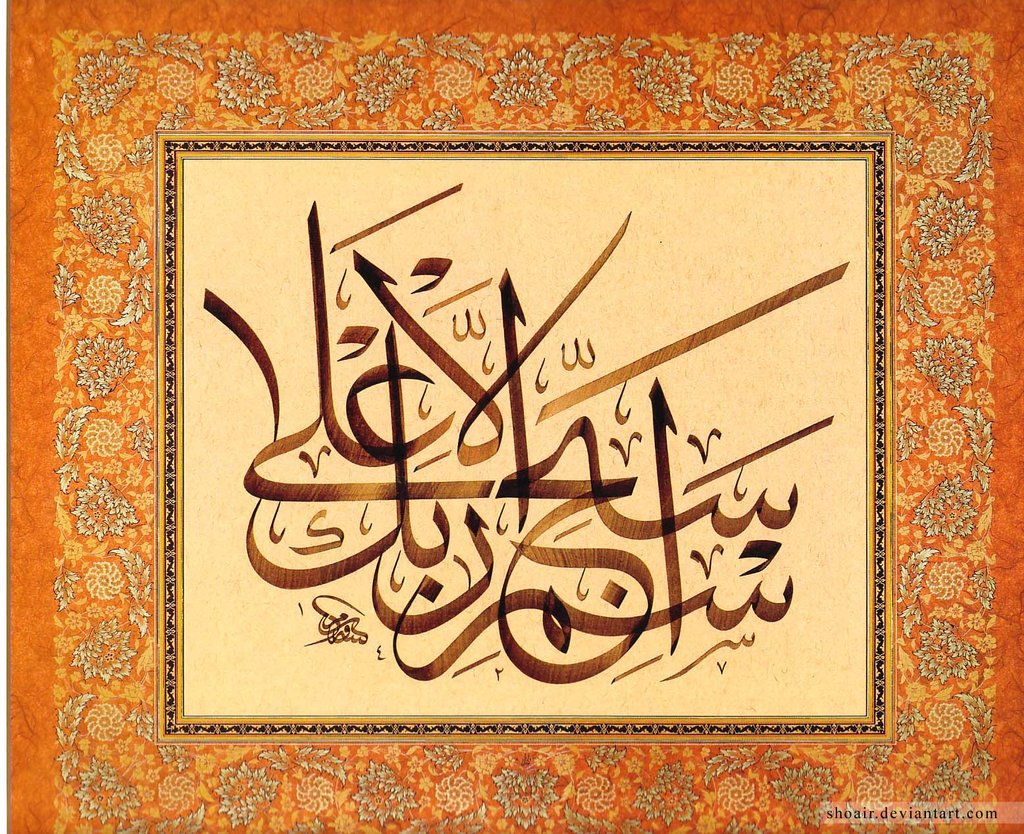 سَبِّحِ اسْمَ رَبِّكَ الْأَعْلَى
١٤٢٧
shoair.deviantart.com